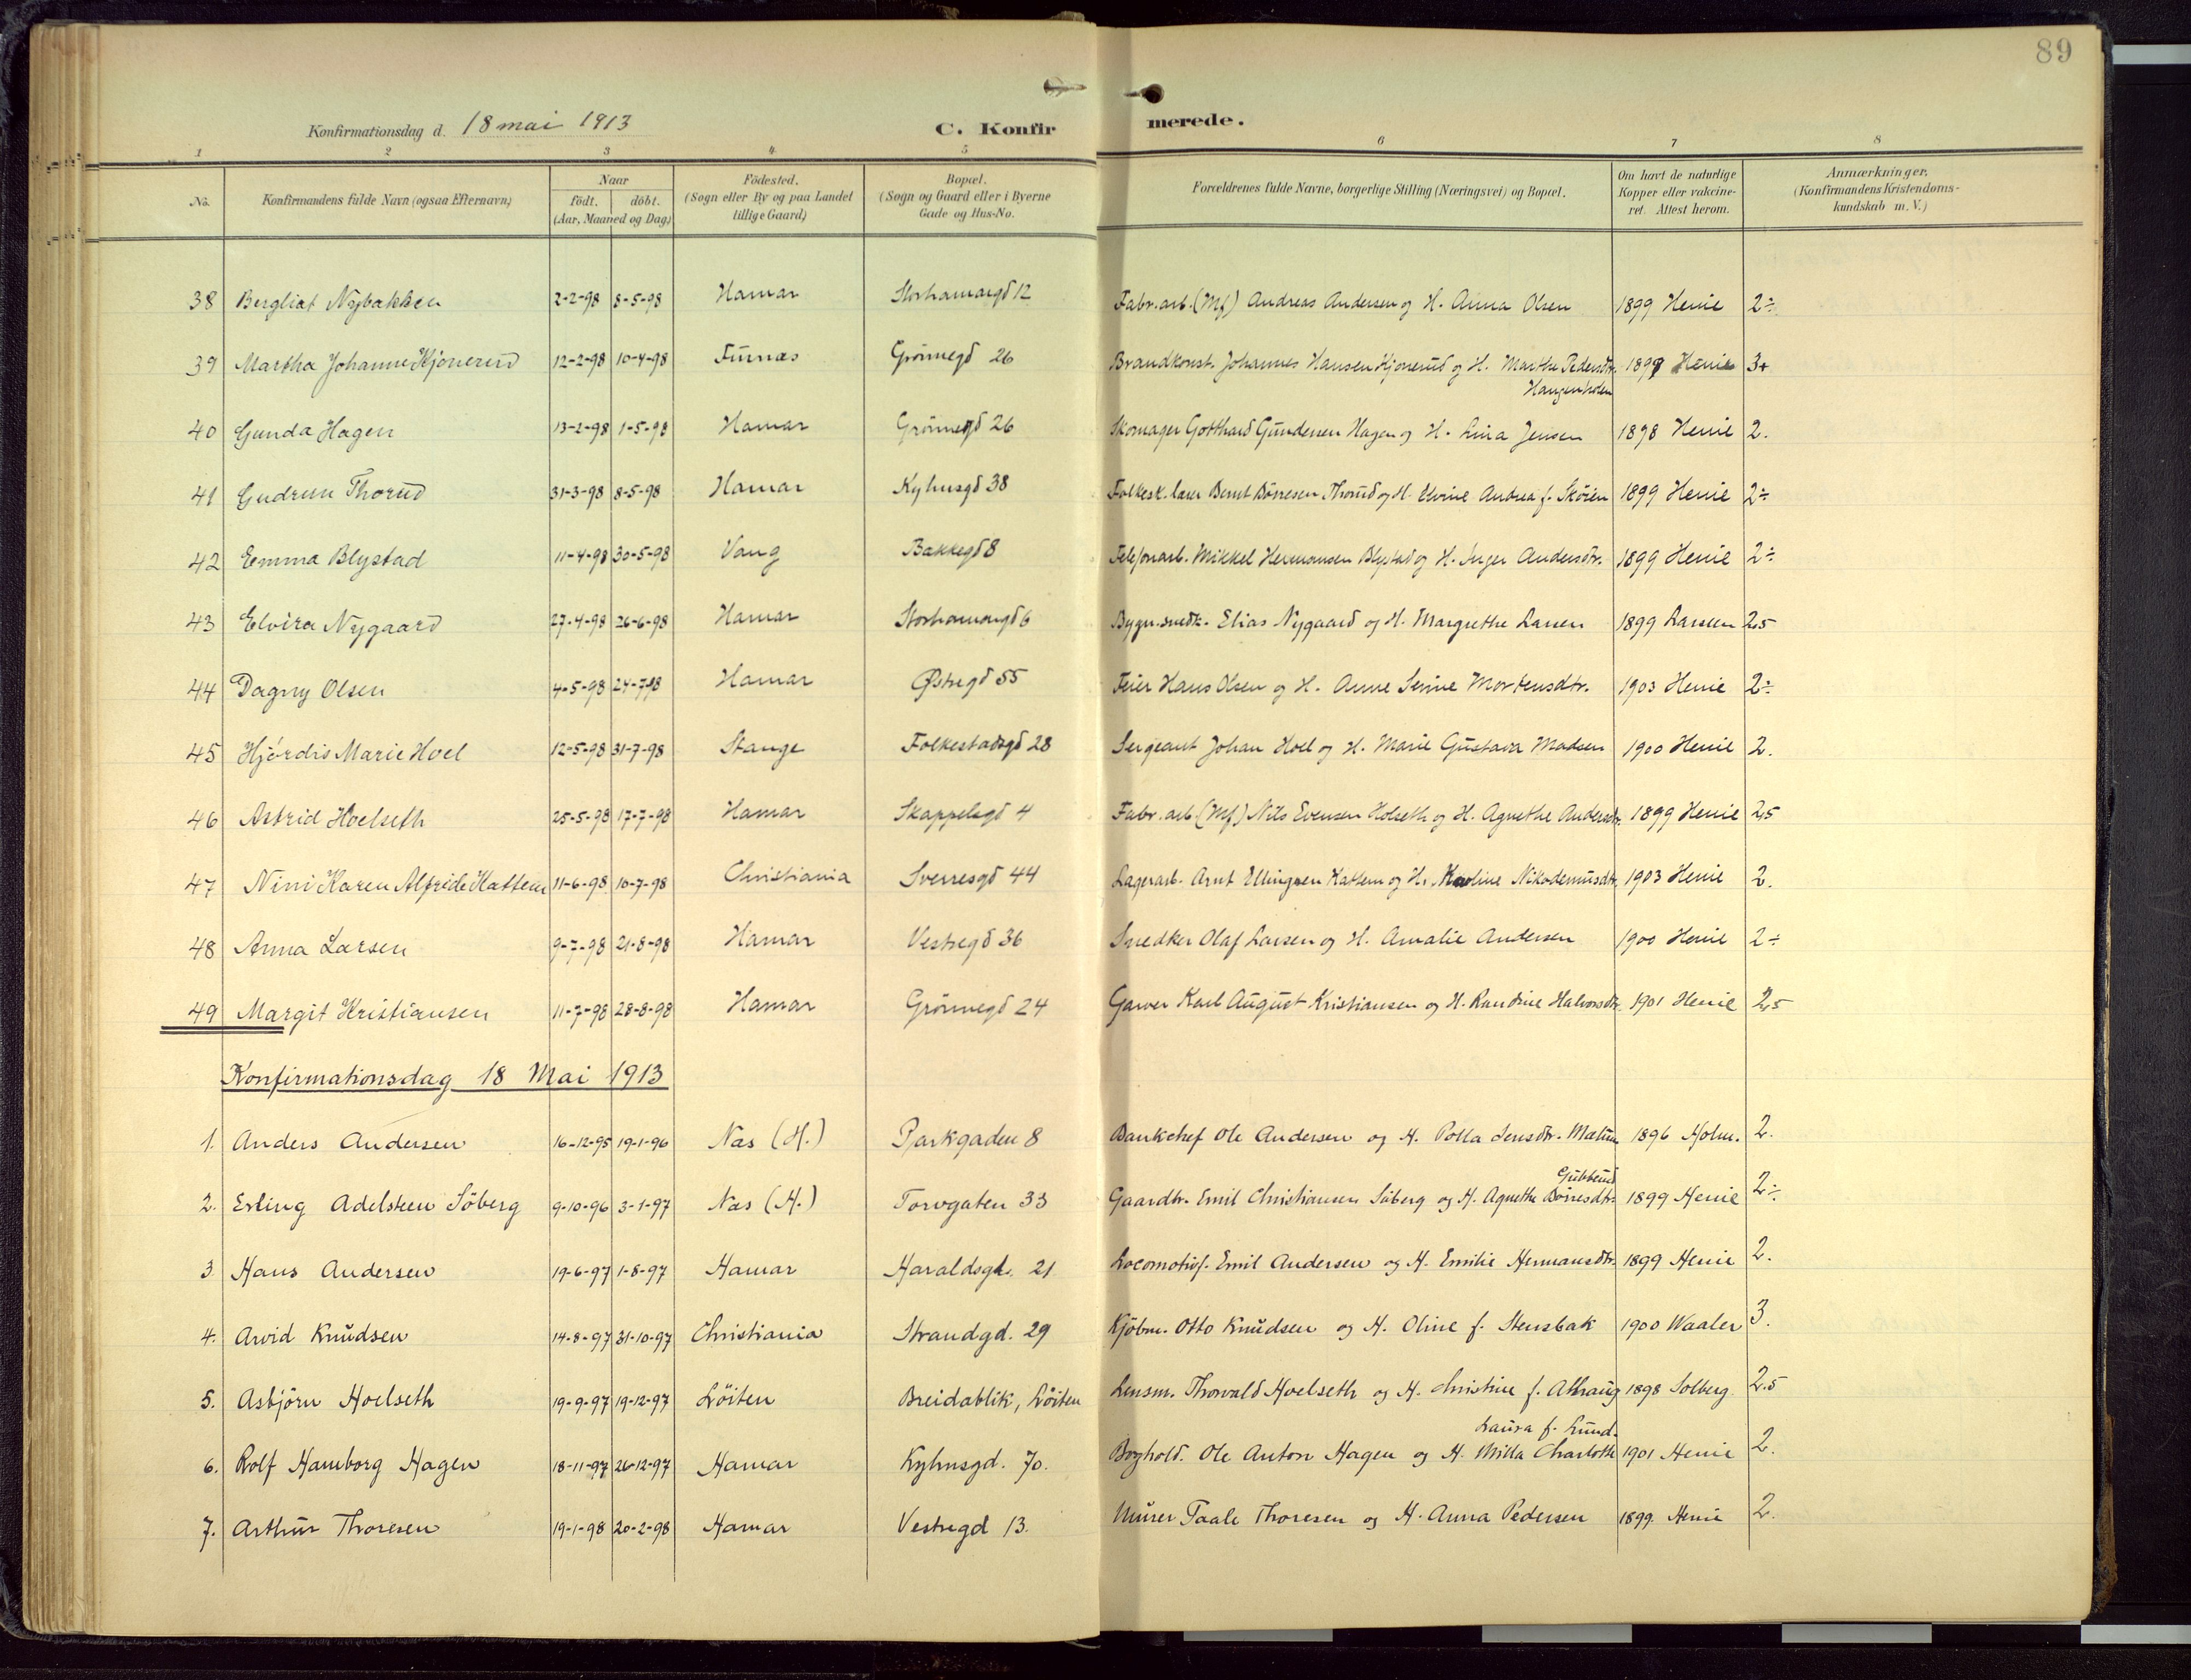 89
Konfirmationsdag d. 18 mai 1913 C. Konfirmerede.
1 2 3 4 5 6 7 8
No. Konfirmandens fulde Navn (ogsaa Efternavn) Naar födt. döbt. (Aar, Maaned og Dag) Födested. (Sogn eller By og paa Landet tillige Gaard) Bopæl. (Sogn og Gaard eller i Byerne Gade og Hus-No. Forældrenes fulde Navne, borgerlige Stilling (Næringsvei) og Bopæl. Om havt de naturlige Kopper eller vakcineret. Attest herom. Anmærkninger. (Konfirmandens Kristendomskundskab m. V.)
38 Bergliot Nybakken 2-2-98 8-5-98 Hamar Storhamargd 12 Fabr.arb. (Mf) Andreas Andersen og H. Anna Olsen 1899 Henie 2÷
39 Martha Johanne Kjonerud 12-2-98 10-4-98 Furnæs Grönnegd 26 Brandkonst. Johannes Hansen Kjonerud og H. Marthe Pedersdtr. 1899 Henie 3+
40 Gunda Hagen 13-2-98 1-5-98 Hamar Grönnegd 26 Skomager Gotthard Gundersen Hagen og H. Lina Jensen 1898 Henie 2.
41 Gudrun Thorud 31-3-98 8-5-98 Hamar Kyhnsgd 38 Folkesk.lærer Bernt Börresen Thorud og H. Elvine Andrea f. Sköien 1899 Henie 2÷
42 Emma Blystad 11-4-98 30-5-98 Vang Bakkegd 8 Telefonarb. Mikkel Hermansen Blystad og H. Inger Andersdtr. 1899 Henie 2÷
43 Elvira Nygaard 27-4-98 26-6-98 Hamar Storhamargd 6 Bygn.snedk. Elias Nygaard og H. Margrethe Larsen 1899 Larsen 2,5
44 Dagny Olsen 4-5-98 24-7-98 Hamar Østregd 55 Feier Hans Olsen og H. Anne Serine Mortensdtr. 1903 Henie 2÷
45 Hjördis Marie Hoel 12-5-98 31-7-98 Stange Folkestadsgd 28 Sergeant Johan Hoel og H. Marie Gustava Madsen 1900 Henie 2.
46 Astrid Hoelseth 25-5-98 17-7-98 Hamar Skappelsgd 4 Fabr.arb. (Mf) Nils Evensen Holseth og H. Agnethe Andersdtr. 1899 Henie 2,5
47 Nini Karen Alfride Kattem 11-6-98 10-7-98 Christiania Sverresgd 44 Lagerarb. Arnt Ellingsen Kattem og H. Karoline Nikodemusdtr. 1903 Henie 2.
48 Anna Larsen 9-7-98 21-8-98 Hamar Vestregd 36 Snedker Olaf Larsen og H. Amalie Andersen 1900 Henie 2÷
49 Margit Kristiansen 11-7-98 28-8-98 Hamar Grönnegd 24 Garver Karl August Kristiansen og H. Randine Halvorsdtr. 1901 Henie 2,5
Konfirmationsdag 18 Mai 1913
1. Anders Andersen 16-12-95 19-1-96 Næs (H.) Parkgaden 8 Bankchef Ole Andersen og H. Polla Jensdtr. 1896 Holm. 2.
Gubberud
2. Erling Adelsteen Söberg 9-10-96 3-1-97 Næs (H.) Torvgaten 33 Gaardbr. Emil Christiansen Söberg og H. Agnethe Börresdtr. 1899 Henie 2÷
3. Hans Andersen 19-6-97 1-8-97 Hamar Haraldsgd. 21 Locomotivf. Emil Andersen og H. Emilie Hermansdtr. 1899 Henie 2.
4. Arvid Knudsen 14-8-97 31-10-97 Christiania Strandgd. 29 Kjöbm. Otto Knudsen og H. Oline f. Stensbak 1900 Waaler 3.
5. Asbjörn Hoelseth 19-9-97 19-12-97 Löiten Breidablik, Löiten Lensm. Thorvald Hoelseth og H. Christine f. Alhaug 1898 Solberg 2.5
Laura f. Lund.
6. Rolf Hamborg Hagen 18-11-97 26-12-97 Hamar Kyhnsgd. 70. Boghold. Ole Anton Hagen og H. Milla Charlotte 1901 Henie 2.
7. Arthur Thoresen 19-1-98 20-2-98 Hamar Vestregd 13. Murer Paale Thoresen og H. Anna Pedersen 1899. Henie 2.